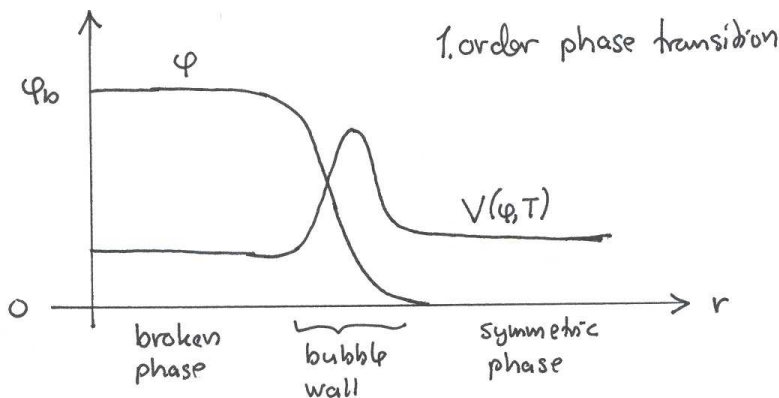 1. order phase transition
φ
φb
V(φ,T)
0
r
broken
phase
bubble
wall
symmetric
phase